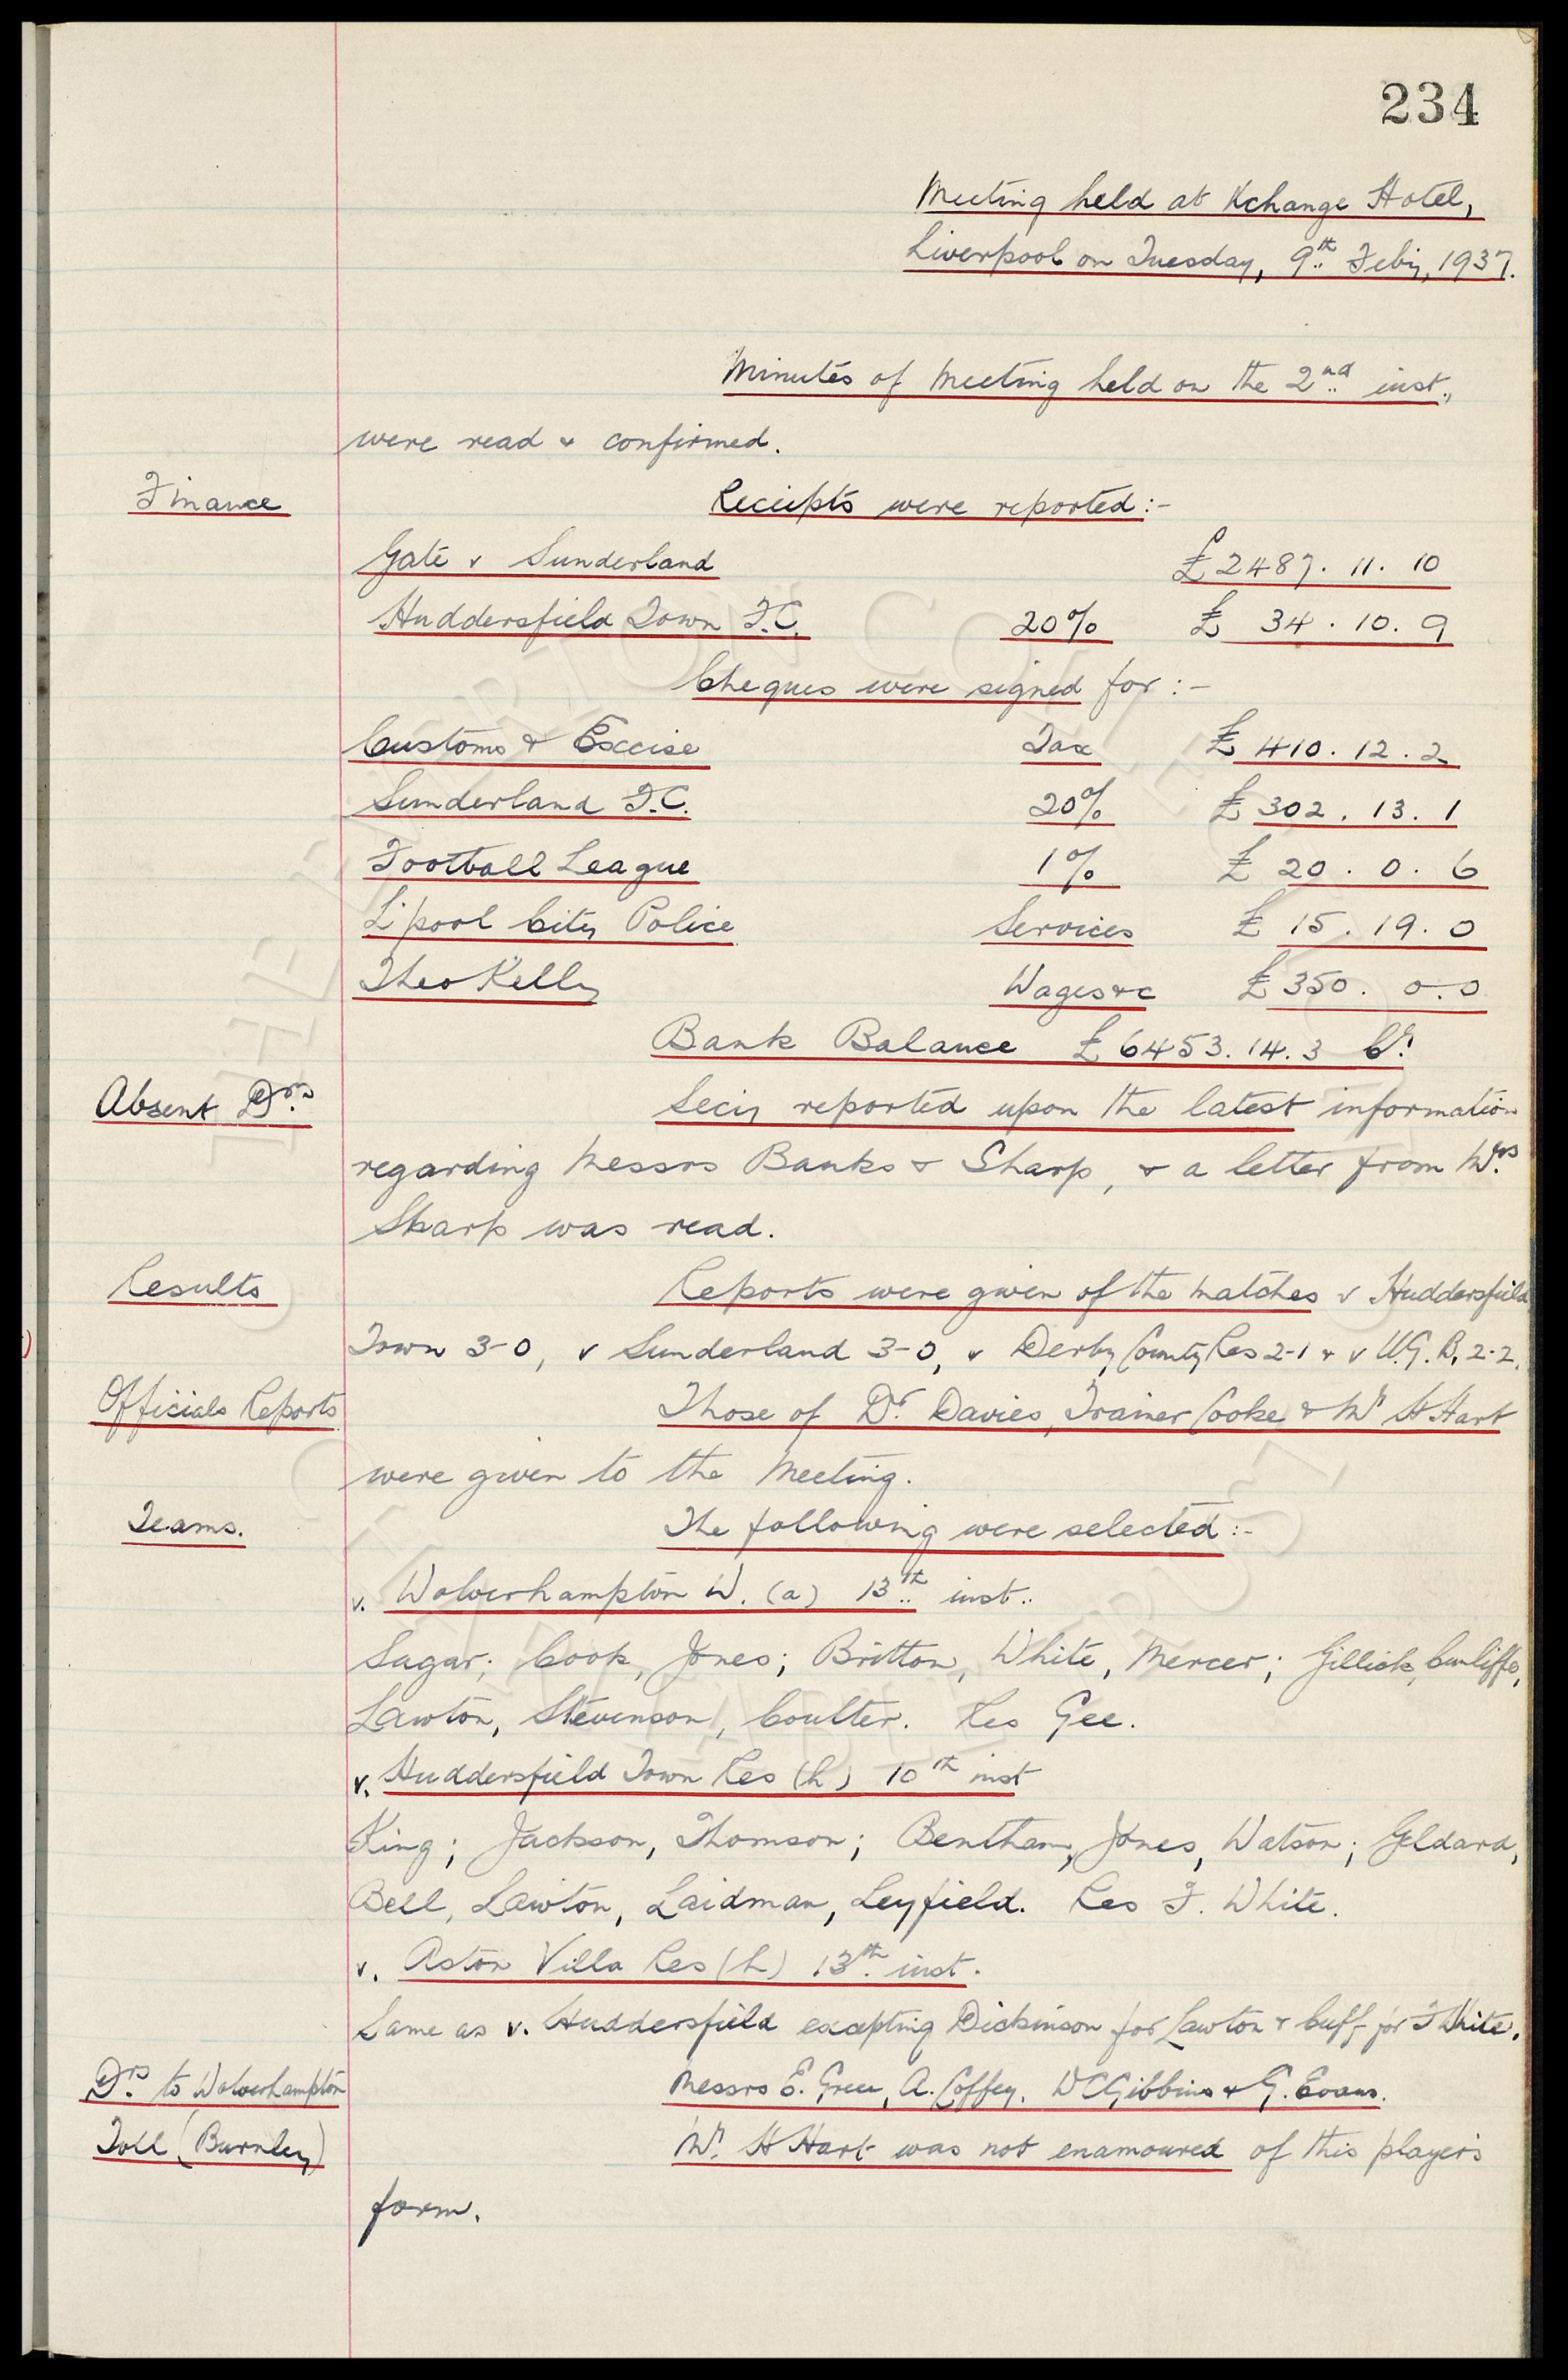 234
Meeting held at Xchange Hotel,
Liverpool on Tuesday, 9th Feby, 1937.
Minutes of Meeting held on the 2nd inst.,
were read & confirmed.
Finance
Receipts were reported:-
Gate v Sunderland £2487. 11. 10
Huddersfield Town F.C. 20% £ 34. 10. 9
Cheques were signed for:-
Customs & Excise Tax £ 410. 12. 2
Sunderland F.C. 20% £ 302. 13. 1
Football League 1% £ 20. 0. 6
L'pool City Police Services £ 15. 19. 0
Theo Kelly Wages &c £ 350. 0. 0
Bank Balance £ 6453. 14. 3 Cr.
Absent Drs.
Secy reported upon the latest information
regarding Messrs Banks & Sharp, & a letter from Mrs.
Sharp was read.
Results
Reports were given of the matches v Huddersfield
Town 3-0, v Sunderland 3-0, v Derby County Res 2-1 & v U.G.B. 2-2.
Officials Reports
Those of Dr. Davies, Trainer Cooke & Mr H Hart
were given to the Meeting.
Teams.
The following were selected:-
v. Wolverhampton W. (a) 13th inst..
Sagar; Cook, Jones; Britton, White, Mercer; Gillick, Cunliffe,
Lawton, Stevenson, Coulter. Res Gee.
v. Huddersfield Town Res (h) 10th inst
King; Jackson, Thomson; Bentham, Jones, Watson; Geldard,
Bell, Lawton, Laidman, Leyfield. Res T. White.
v. Aston Villa Res (h) 13th inst.
Same as v. Huddersfield excepting Dickinson for Lawton & Cuff for T White.
Drs. to Wolverhampton
Messrs E. Green, A. Coffey, W C Gibbins & G. Evans.
Toll (Burnley)
Mr. H Hart was not enamoured of this player's
form.